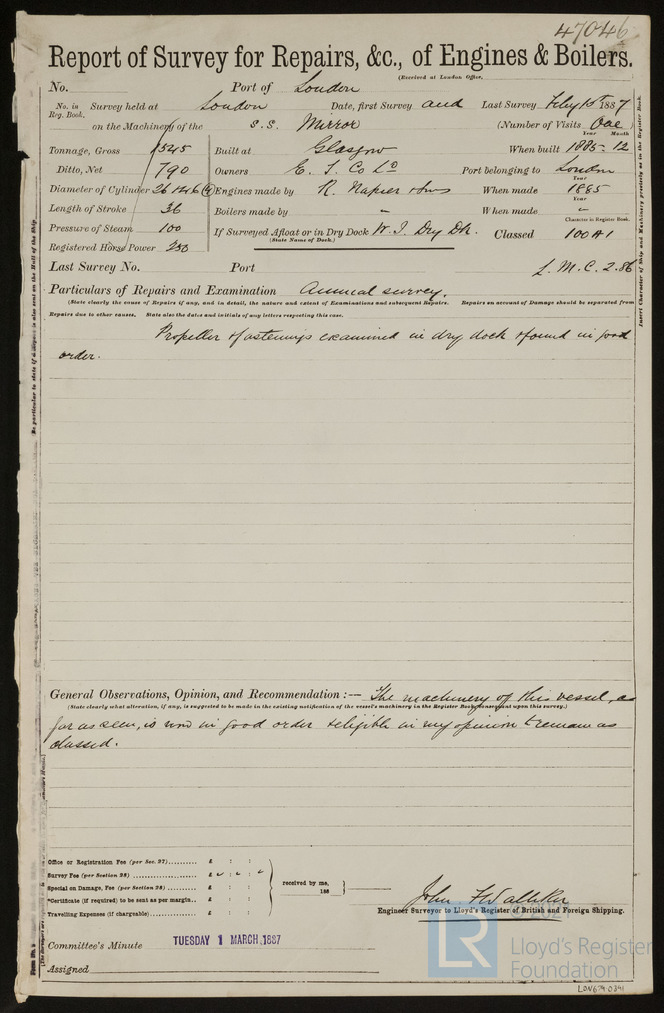 47046
Report of Survey for Repairs, &c., of Engines & Boilers.
(Received at London Office,
No. Port of London
No. in Reg. Book. Survey held at London Date, first Survey and Last Survey Feby 15th 1887
on the Machinery of the S.S. Mirror (Number of Visits One
Year Month
Tonnage, Gross 1545 Built at Glasgow When built 1885-12
Ditto, Net 790 Owners E. T. Co Ld Port belonging to London
Year
Diameter of Cylinder 26 & 46 Engines made by R. Napier & Sons When made 1885
Year
Length of Stroke 36 Boilers made by " When made "
Character in Register Book.
Pressure of Steam 100 If Surveyed Afloat or in Dry Dock W. I. Dry Dk. Classed 100 A1
(State Name of Dock.)
Registered Horse Power 250
Last Survey No. Port L.M.C. 2.86
Particulars of Repairs and Examination Annual survey.
(State clearly the cause of Repairs if any, and in detail, the nature and extent of Examinations and subsequent Repairs. Repairs on account of Damage should be separated from
Repairs due to other causes. State also the dates and initials of any letters respecting this case.
Propeller & fastenings examined in dry dock & found in good
order.
General Observations, Opinion, and Recommendation :— The machinery of this vessel, as
(State clearly what alteration, if any, is suggested to be made in the existing notification of the vessel's machinery in the Register Book, consequent upon this survey.)
far as seen, is now in good order & eligible in my opinion to remain as
classed.
Office or Registration Fee (per Sec. 27)......... £ : :
Survey Fee (per Section 28)......... £ " : " : "
Special on Damage, Fee (per Section 28)......... £ : :
*Certificate (if required) to be sent as per margin.. £ : :
Travelling Expenses (if chargeable)......... £ : :
received by me,
188
John F Walliker
Engineer Surveyor to Lloyd's Register of British and Foreign Shipping.
Committee's Minute TUESDAY 1 MARCH, 1887
Assigned
LR
Lloyd's Register
Foundation
LON679-0341
Be particular to state if a Report is also sent on the Hull of the Ship.
Insert Character of Ship and Machinery precisely as in the Register Book.